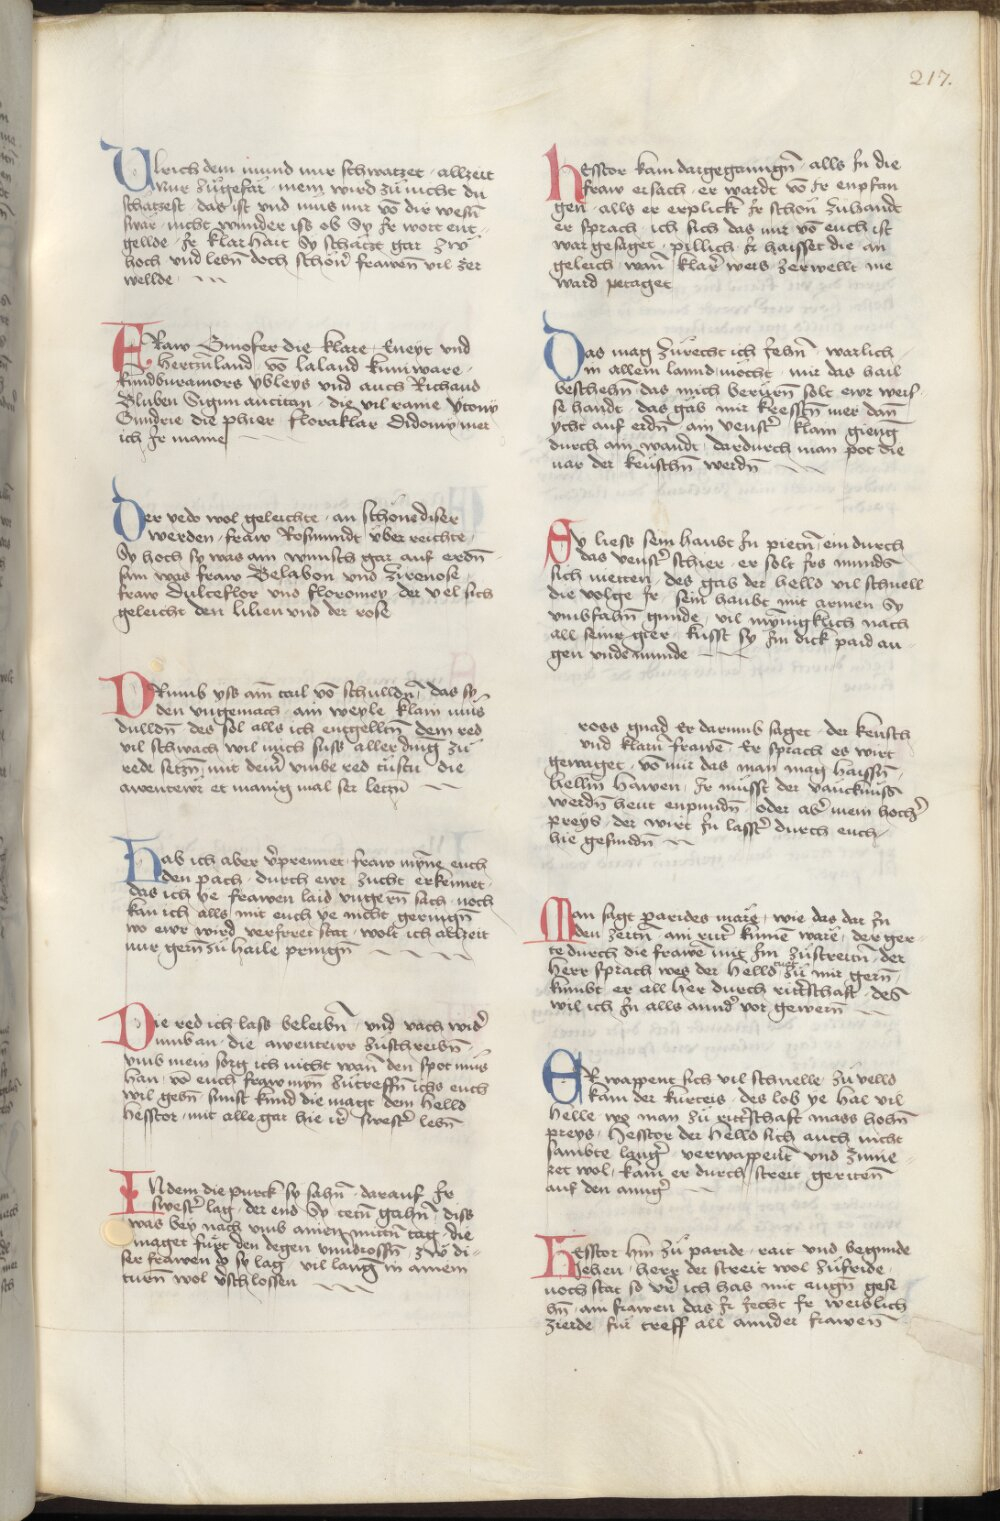 217.
Ulrich dein mund nur schwatzet · allzeit
nur zu gefar · mein wird zu nicht du
schatzest · das ist vnd mus mir võ dir wesñ
swär · nicht wunder iss ob Sy Jr wort ent
gellde · Jr klarhait Sy schatzt gar zw
hoch vnd lesñ doch schoñ frawen vil zer
wellde ·
FRaw Ginofer die klare · Eneyt vnd
Hertzñland · võ laland kuniware ·
kundburamors ybleys vnd auch Richaud
Bluben Sigun aucitan · die vil rame ytony
Gundrie die phier · floraklar Didomy mer
ich Jr name
Der yedo wol geleichte · an schöne diser
werden · fraw Rosmundt vber reichte ·
Sy hoch sy was ain wunsch gar auf erdñ ·
sam was fraw Belabon vnd zirenose
fraw Dulceflor vnd floromey · der vel sich
geleicht den lilien vnd der rose
DRumb vss ainẽ tail võ schulldñ · das sy
den vngemach · ain weyle klain mus
dulldñ des sol alls ich entgelltñ dem red
vil schwach wil mich suss aller ding zu
rede setzñ mit deiñ vmbe red tustu die
awentewr et manig mal ser letzñ
Hab ich aber v̉prennet · fraw myne euch
den pach · durch ewr zucht erkennet ·
das ich ye frawen laid vngern sach · noch
kan ich alls mit euch ye nicht geringñ
wo ewr wird verseret stat · wolt ich allzeit
nur gern zu haile pringñ
Die red ich lass beleibñ · vnd vach wid̉
vmb an · die awentewr zuschreibñ
vmb mein sorg ich nicht wañ den spot mus
han · võ euch fraw myñ zutreffñ ichs euch
wil gebñ sunst kund die magt dem helld
Hesstor · mit alle gar hie ir̉ swest̉ lebñ
INdem die purck sy sahñ · darauf Jr
swest̉ lag · der end Sy tetñ gahñ diss
was bey nach vmb ainen mittñ tag · die
maget furt den degen vnu̇drossñ · zw di-
ser frawen do sy lag · vil lang in ainem
turñ wol v̉schlossen
Hesstor kam dargeganngñ · alls Jn die
fraw ersach · er wardt võ Jr enpfan
gen · alls er erplickt Jr schon zuhandt
er sprach · ich sich das mir võ euch ist
war gesaget · pillich Jr haisset die an
geleich · wañ klar̉ weib zerwellt nie
ward petaget
Das mag zurecht ich Jehñ · warlich ·
in allein lannd möcht · mir das hail
beschehñ · das mich berurñ solt ewr weis-
se handt · das gab mir kressten mer dañ
ycht auf erdñ · am venst̉ klain gieng
durch ain wandt · dardurch man pot die
nar der keuschñ werdñ
Sy liess sein haubt Jn pietñ · ein durch
das venst̉ schier · er solt Jrs munds
sich nietten · des gab der helld vil schnell
die volge Jr · sein haubt mit armen Sy
vmbfahñ gunde · vil mynnigklich nach
all seiner gier · kusst sy Jm dick paid au-
gen vnde munde
ross gnad Er darumb saget · der keusch
vnd klarñ frawẽ · Er sprach es wirt
gewaget · võ mir das man mag haissñ
hellm hawen · Jr müsst der vanncknuss
werdñ heut enpundñ · oder ab̉ mein hoch̉
preyb · der wirt Jn lasst̉ durch euch
hie gefundñ
Man sagt parides märe · wie das dar Jn
den zeitñ · ain ritt̉ kumẽ ware · der ger-
te durch die frawẽ mit Jm zustreittñ · der
herr sprach wes der helld ruecht zu mir gern
kumbt er all her durch ritt̉schaft · des
wil ich Jn alls annd̉ vor gewern
ER wappent sich vil schnelle · zu velld
kam der kurteis · des lob ye hal vil
helle wo man zu ritt̉schaft mass hohñ
preyb · Hesstor der helld sich auch nicht
sambte lang̉ · verwappent vnd zimie-
ret wol · kam er durch streit geritten
auf den anng̉
Hesstor hin zu paride · rait vnd begunde
Jehen · herr der streit wol zufride ·
noch stat so vẽ ich hab mit augñ gese
hñ · ain frawen das Jr Jecht Jr weiblich
zierde fur treff all annder frawen